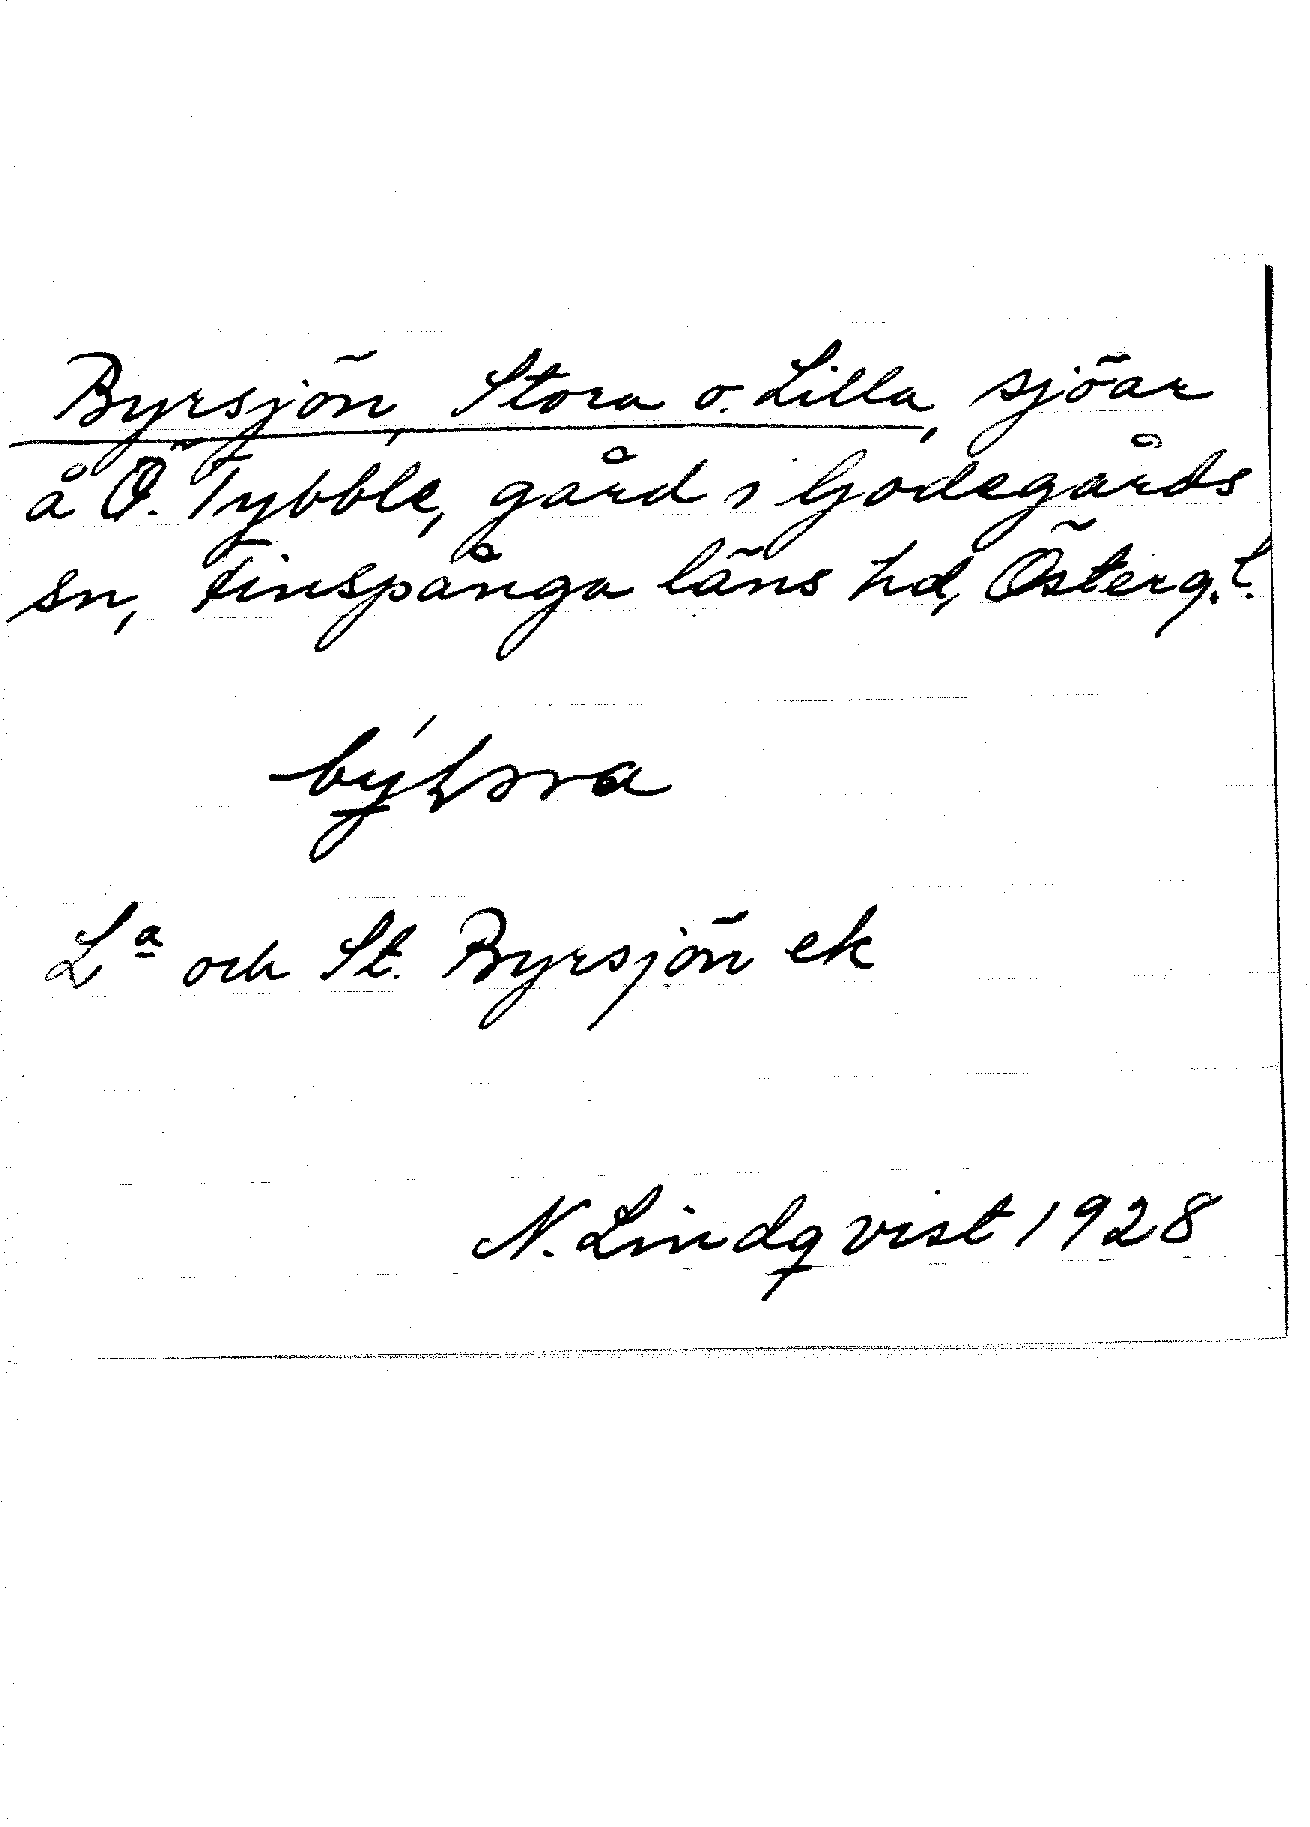 Byrsjön, Stora o. Lilla, sjöar
å Ö. Tybble, gård i Godegårds
sn, Finspånga läns hd, Österg.l.
L<sup>a</sup> och St. Byrsjön ek
N. Lindqvist 1928